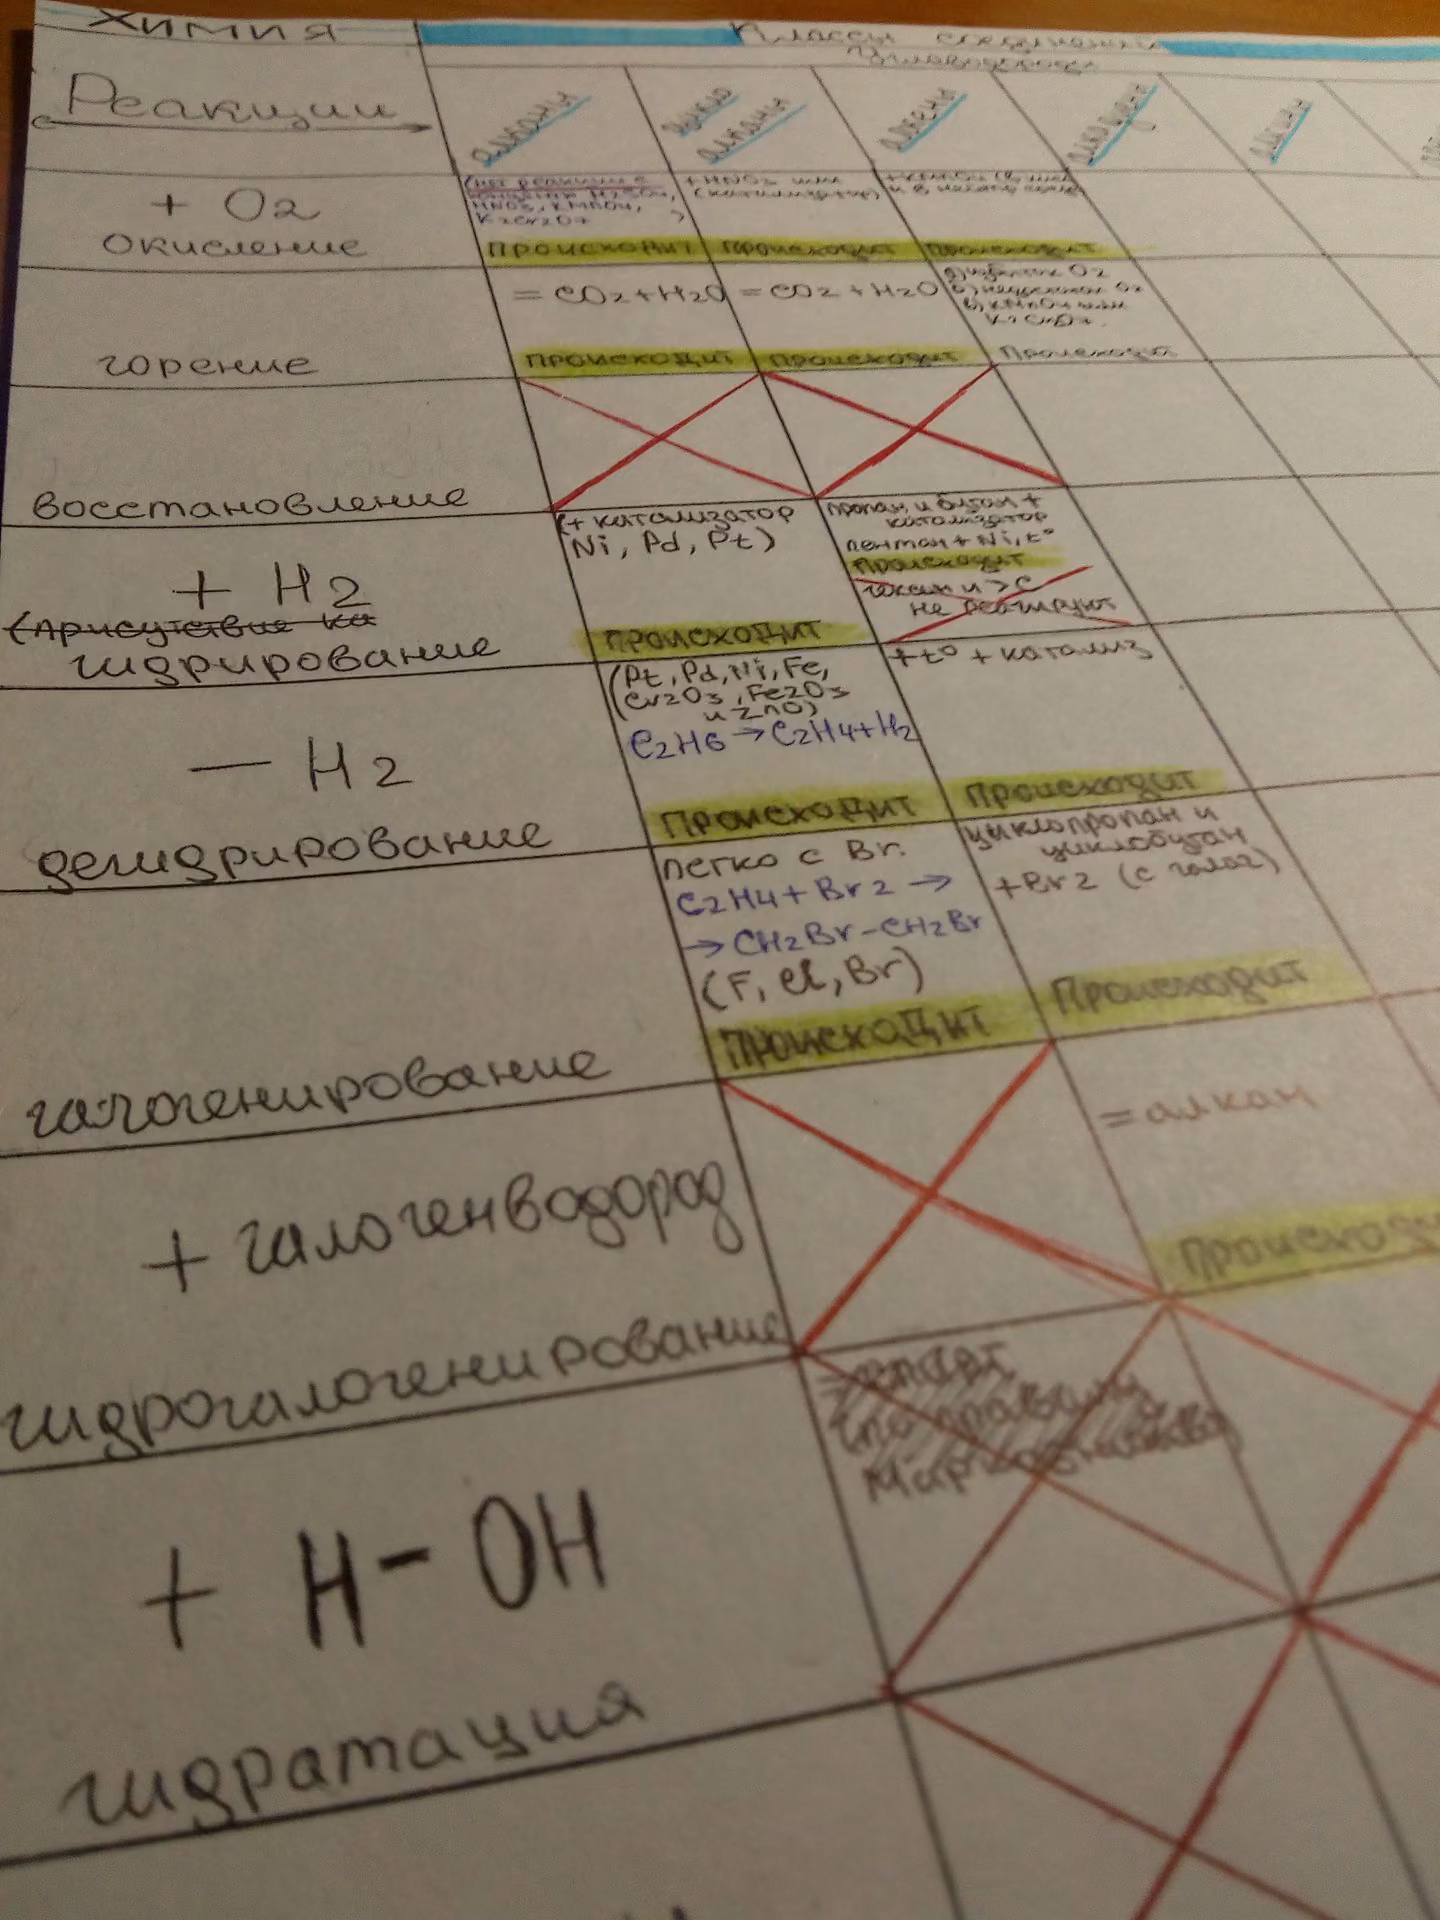 Химия
Классы соединений
Углеводороды
Реакции
алканы
цикло
алканы
алкены
алкадиены
алкины
+ O2
окисление
(нет реакции с
H2SO4,
HNO3, KMnO4,
K2Cr2O7 )
Происходит
+ HNO3 или
(катализатор)
Происходит
+ KMnO4
Происходит
горение
= CO2 + H2O
Происходит
= CO2 + H2O
Происходит
а) избыток O2
б) недостаток O2
в) KMnO4 или
K2Cr2O7.
Происходит
восстановление
+ H2
(присутствие ка
гидрирование
(+ катализатор
Ni, Pd, Pt)
Происходит
пропан и бутан +
катализатор
пентан + Ni, t°
Происходит
гексан и > C
не реагируют
− H2
дегидрирование
(Pt, Pd, Ni, Fe,
Cr2O3, Fe2O3
и ZnO)
C2H6 → C2H4 + H2
Происходит
+ t° + катализ
Происходит
галогенирование
легко с Br.
C2H4 + Br2 →
→ CH2Br-CH2Br
(F, Cl, Br)
Происходит
циклопропан и
циклобутан
+ Br2 (с галог)
Происходит
+ галогенводород
гидрогалогенирование
= алкан
Происходи
+ H-OH
гидратация
= спирт
(по правилу
Марковникова)